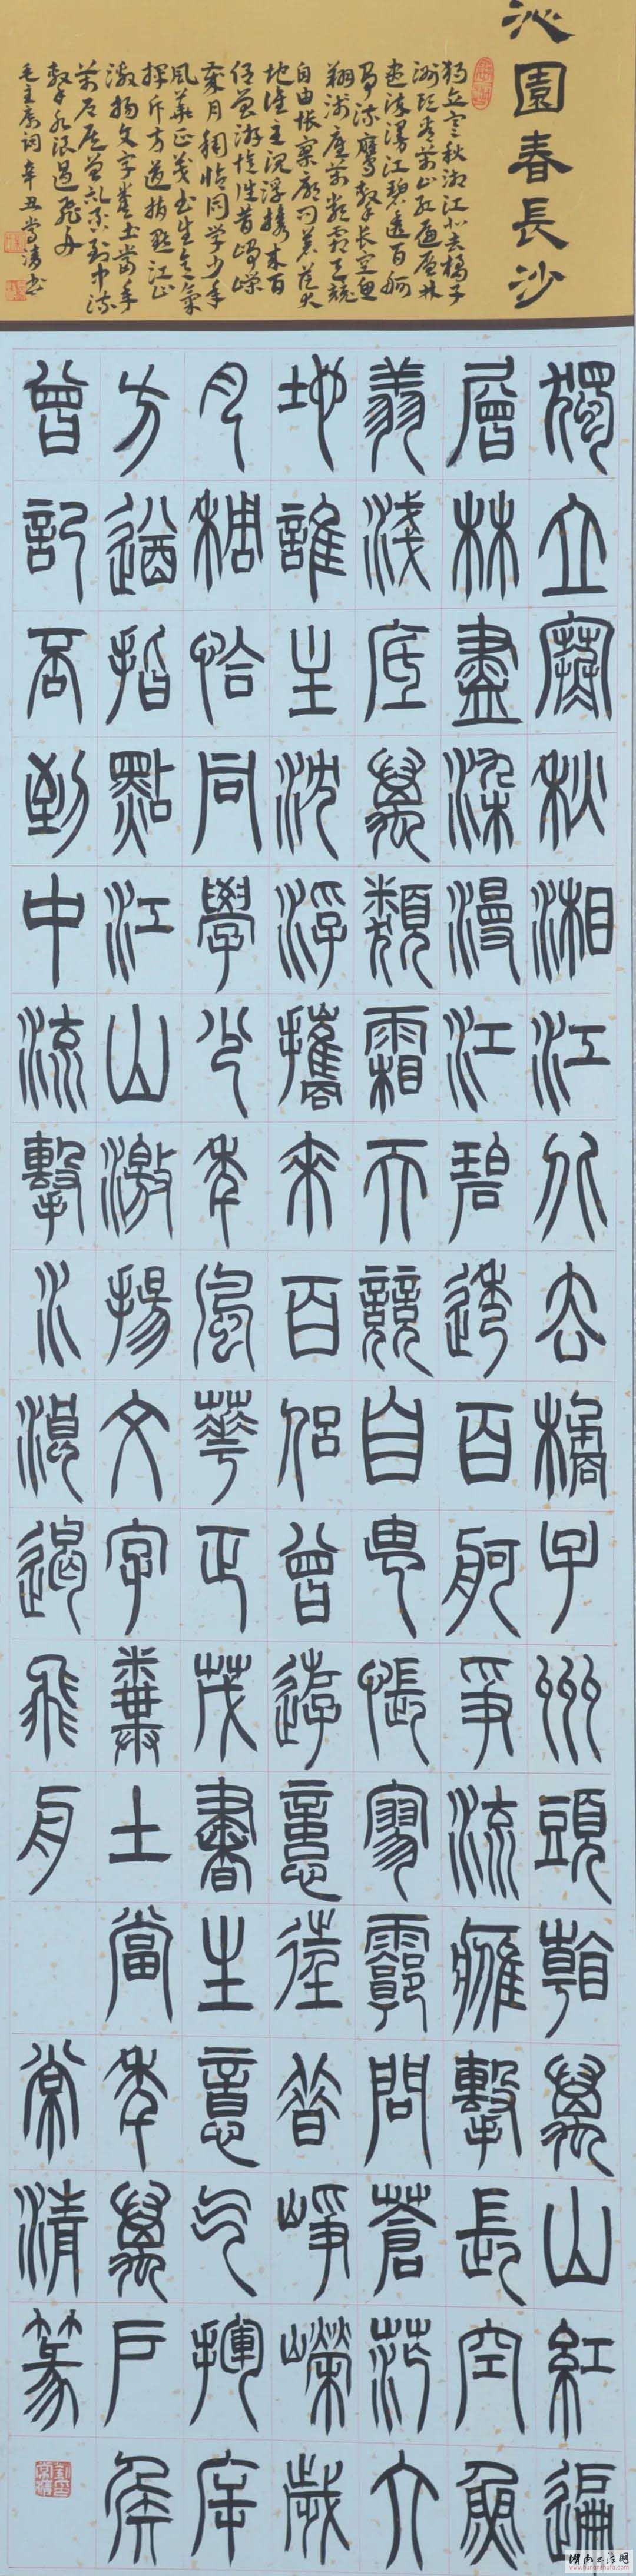 沁園春長沙
獨立寒秋湘江北去橘子
洲頭看萬山紅遍層林
盡染漫江碧透百舸
爭流鷹擊長空魚
翔淺底萬類霜天競
自由悵寥廓問蒼茫大
地誰主沉浮攜來百
侶曾游憶往昔崢嶸
歲月稠恰同學少年
風華正茂書生意氣
揮斥方遒指點江山
激揚文字糞土當年
萬戶侯曾記否到中流
擊水浪遏飛舟
毛主席詞辛丑常清書
獨立寒秋湘江北去橘子洲頭看萬山紅遍
層林盡染漫江碧透百舸爭流鷹擊長空魚
翔淺底萬類霜天競自由悵寥廓問蒼茫大
地誰主沈浮攜來百侶曾遊憶往昔崢嶸歲
月稠恰同學少年風華正茂書生意气揮斥
方遒指點江山激揚文字糞土當年萬戶侯
曾記否到中流擊水浪遏飛舟
常清篆
湖南书法网